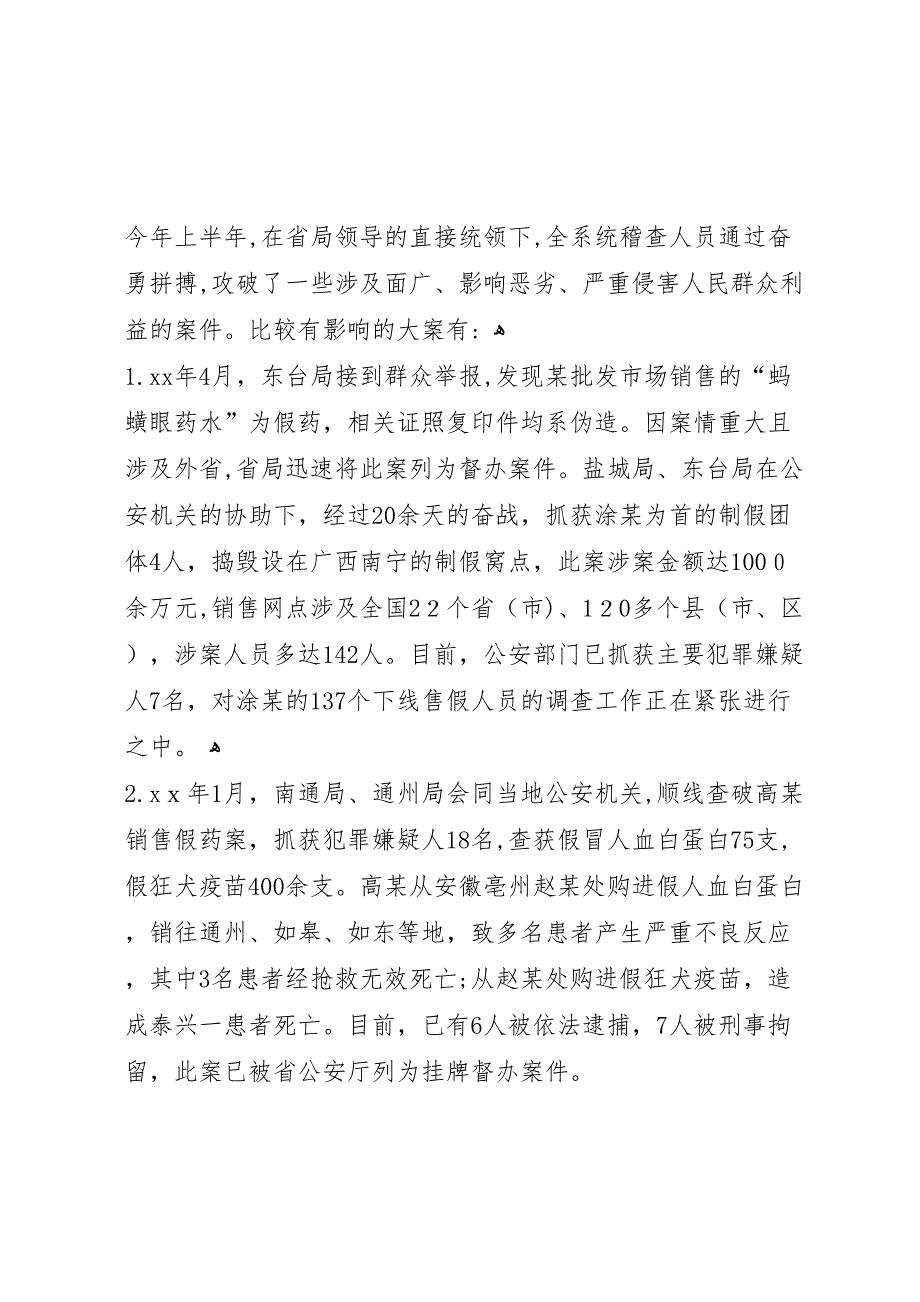 今年上半年,在省局领导的直接统领下,全系统稽查人员通过奋
勇拼搏,攻破了一些涉及面广、影响恶劣、严重侵害人民群众利
益的案件。比较有影响的大案有: ﻫ
1.xx年4月，东台局接到群众举报,发现某批发市场销售的“蚂
蟥眼药水”为假药，相关证照复印件均系伪造。因案情重大且
涉及外省,省局迅速将此案列为督办案件。盐城局、东台局在公
安机关的协助下，经过20余天的奋战，抓获涂某为首的制假团
体4人，捣毁设在广西南宁的制假窝点，此案涉案金额达100０
余万元,销售网点涉及全国２２个省（市)、1２０多个县（市、区
），涉案人员多达142人。目前，公安部门已抓获主要犯罪嫌疑
人7名，对涂某的137个下线售假人员的调查工作正在紧张进行
之中。 ﻫ
2.xｘ年1月，南通局、通州局会同当地公安机关,顺线查破高某
销售假药案，抓获犯罪嫌疑人18名,查获假冒人血白蛋白75支,
假狂犬疫苗400余支。高某从安徽亳州赵某处购进假人血白蛋白
，销往通州、如皋、如东等地，致多名患者产生严重不良反应
，其中3名患者经抢救无效死亡;从赵某处购进假狂犬疫苗，造
成泰兴一患者死亡。目前，已有6人被依法逮捕，7人被刑事拘
留，此案已被省公安厅列为挂牌督办案件。